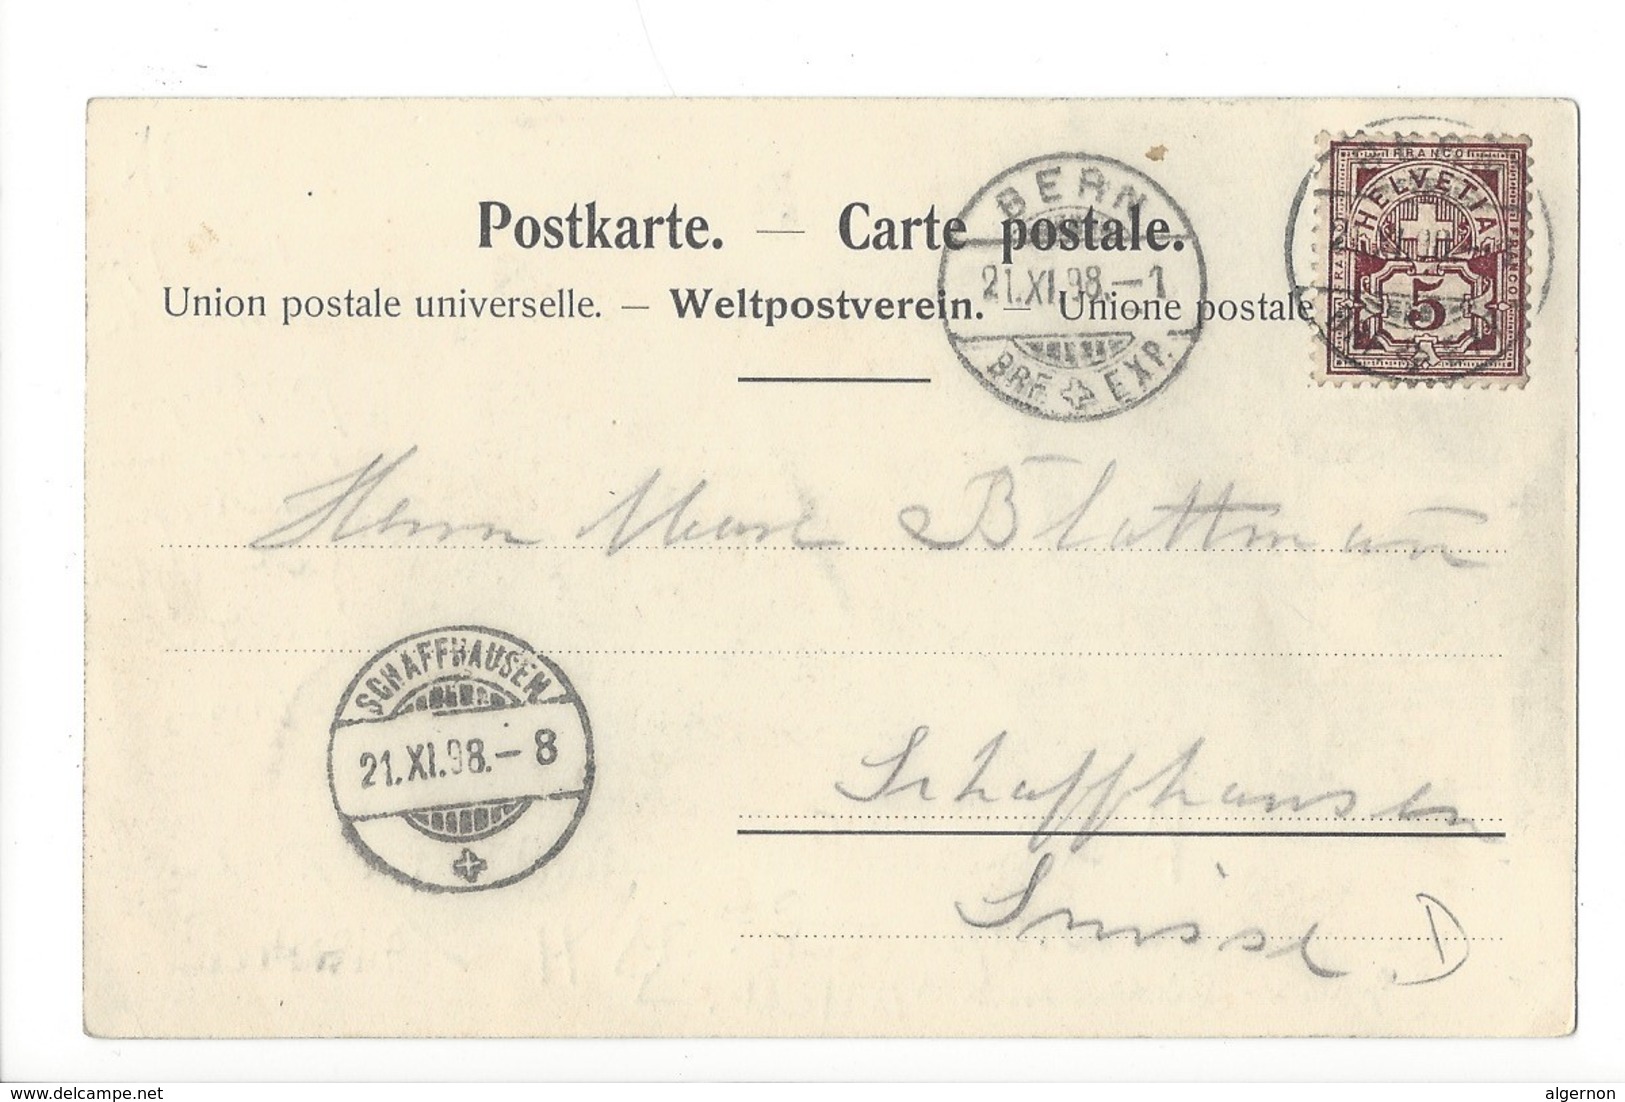 Postkarte. — Carte postale.
Union postale universelle. — Weltpostverein. — Unione postale
BERN
21.XI.98.–1
BRF. EXP.
FRANCO
FRANCO
FRANCO
HELVETIA
5
Herrn Marc Blattmann
SCHAFFHAUSEN
21.XI.98.–8
Schaffhausen
Suisse
D
delcampe.net
algernon